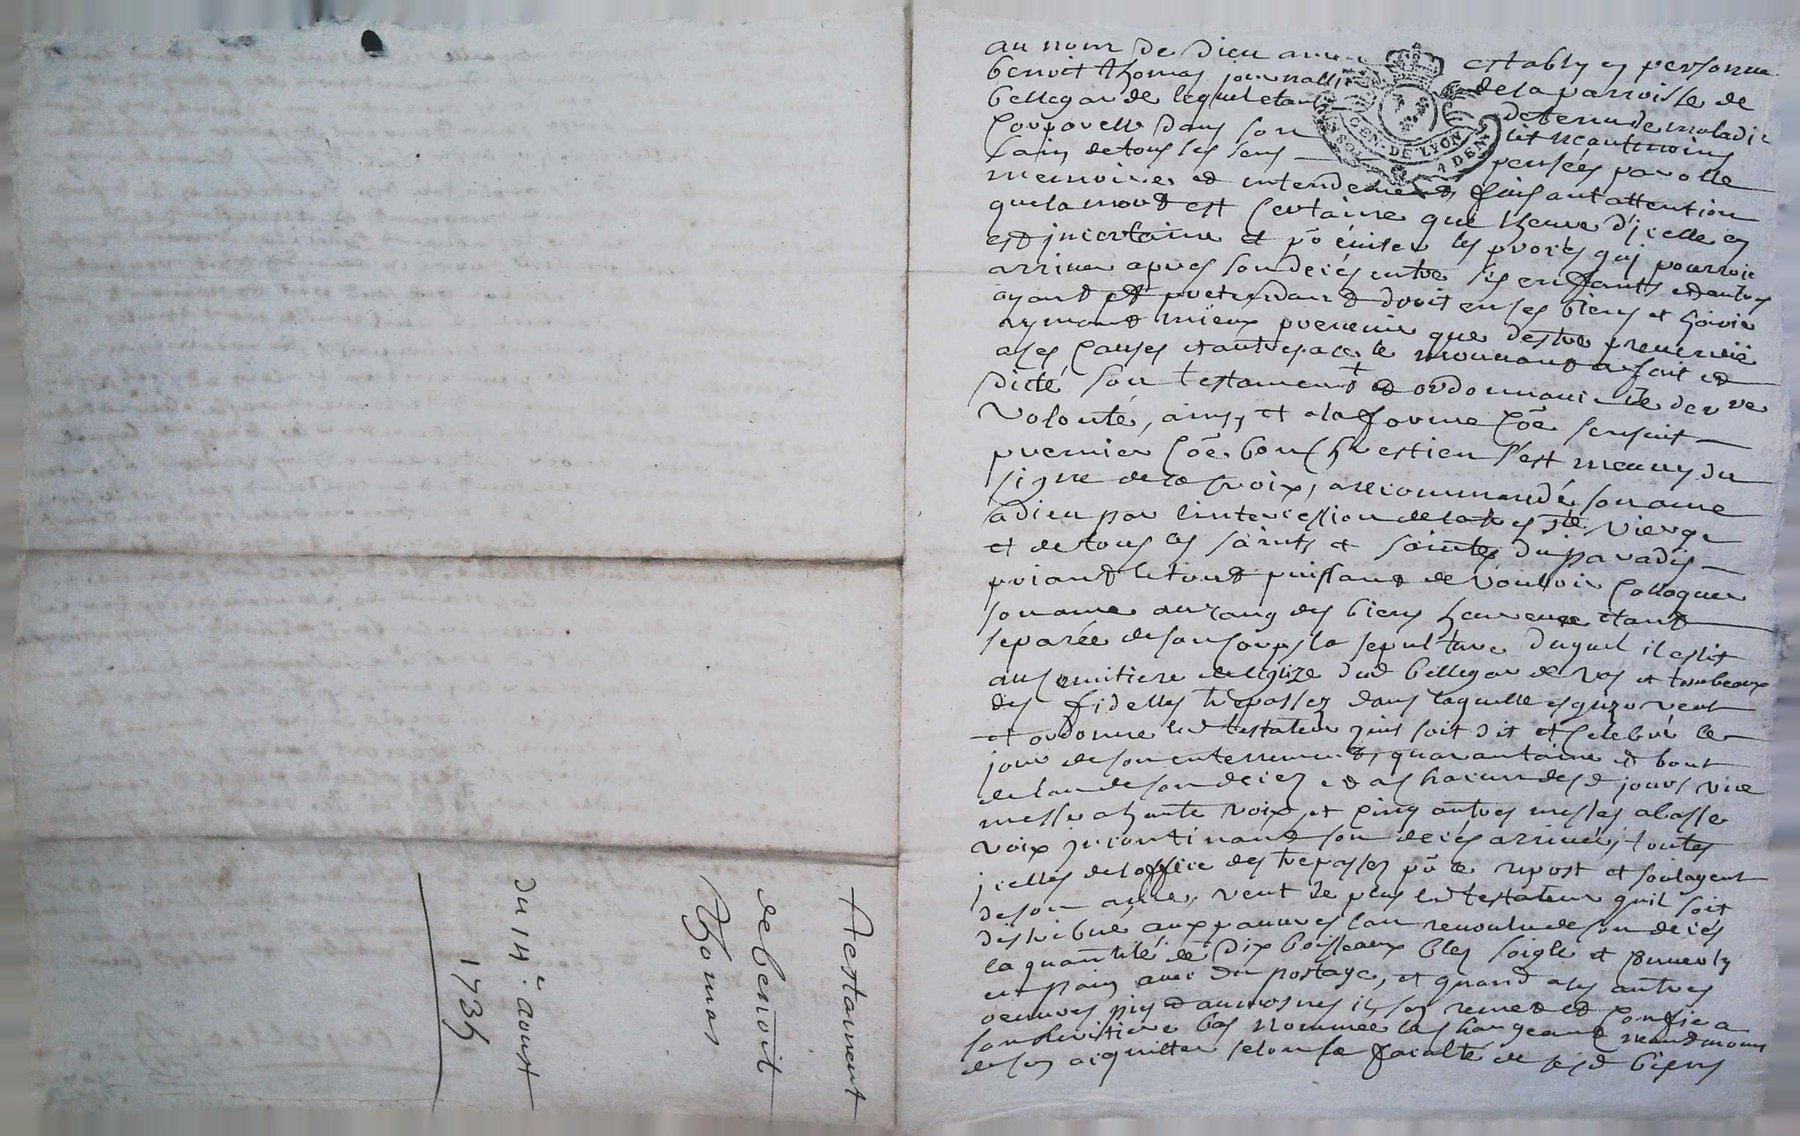 au nom de Dieu amen establÿ en personne
benoit thomas journallier de la parroisse de
bellegarde lequel etant detenu de maladie
corporelle dans son lit neantmoins
sain de tous ses sens pensées parolle
memoire et intendement faisant attention
que la mort est certaine que lheure d'jcelle en
est jncertaine et pō éuiter les procés quj pourroit
arriuer apres son decés entre ses enfants et autres
ayant et pretendant droit en ses biens et hoirie
aymant mieux preuenir que destre preuenüe
a ses causes et autres a ce le mouuant a fait et
dicté son testament et ordonnance de derre
volonté, ainsy et a la forme cōe sensuit
premier cōe bon chrestien s'est meuny du
signe de la croix, a recommandé son ame
a dieu par lintercession de la tres ste vierge
et de tous les saints et saintes du paradis
priant le tout puissant de vouloir collaquer
son ame au rang des biens heureux etant
separée de son corps la sepulture duquel il eslit
au semitiere de leglize dud bellegarde vas et tombeaux
des fidelles trepassez dans laquelle esglize veut
et ordonne led testateur quil soit dit et celebré le
jour de son enterrement, quarantaine et bout
de lan de son decez et a chacun desd jours vne
messe a haute voix, et cinq autres messes a basse
voix jncontinant son deces arriué, toutes
jcelles de loffice des trepassez pō le repost et soulagent
de son ame, veut de plus led testateur quil soit
distribué aux pauures lan reuoulu de son decés
la quantité de dix boisseaux bled soigle et conuerty
en pain auec du postage, et quand a ses autres
oeuures pies et aumosnes il sen remet et confie a
son heritiere bas nommée la chargeant neandmoins
de sen acquitter selon la faculté de sesd biens
testament
de benoit
thomas
du 14e aoust
1735
GEN. DE LYON